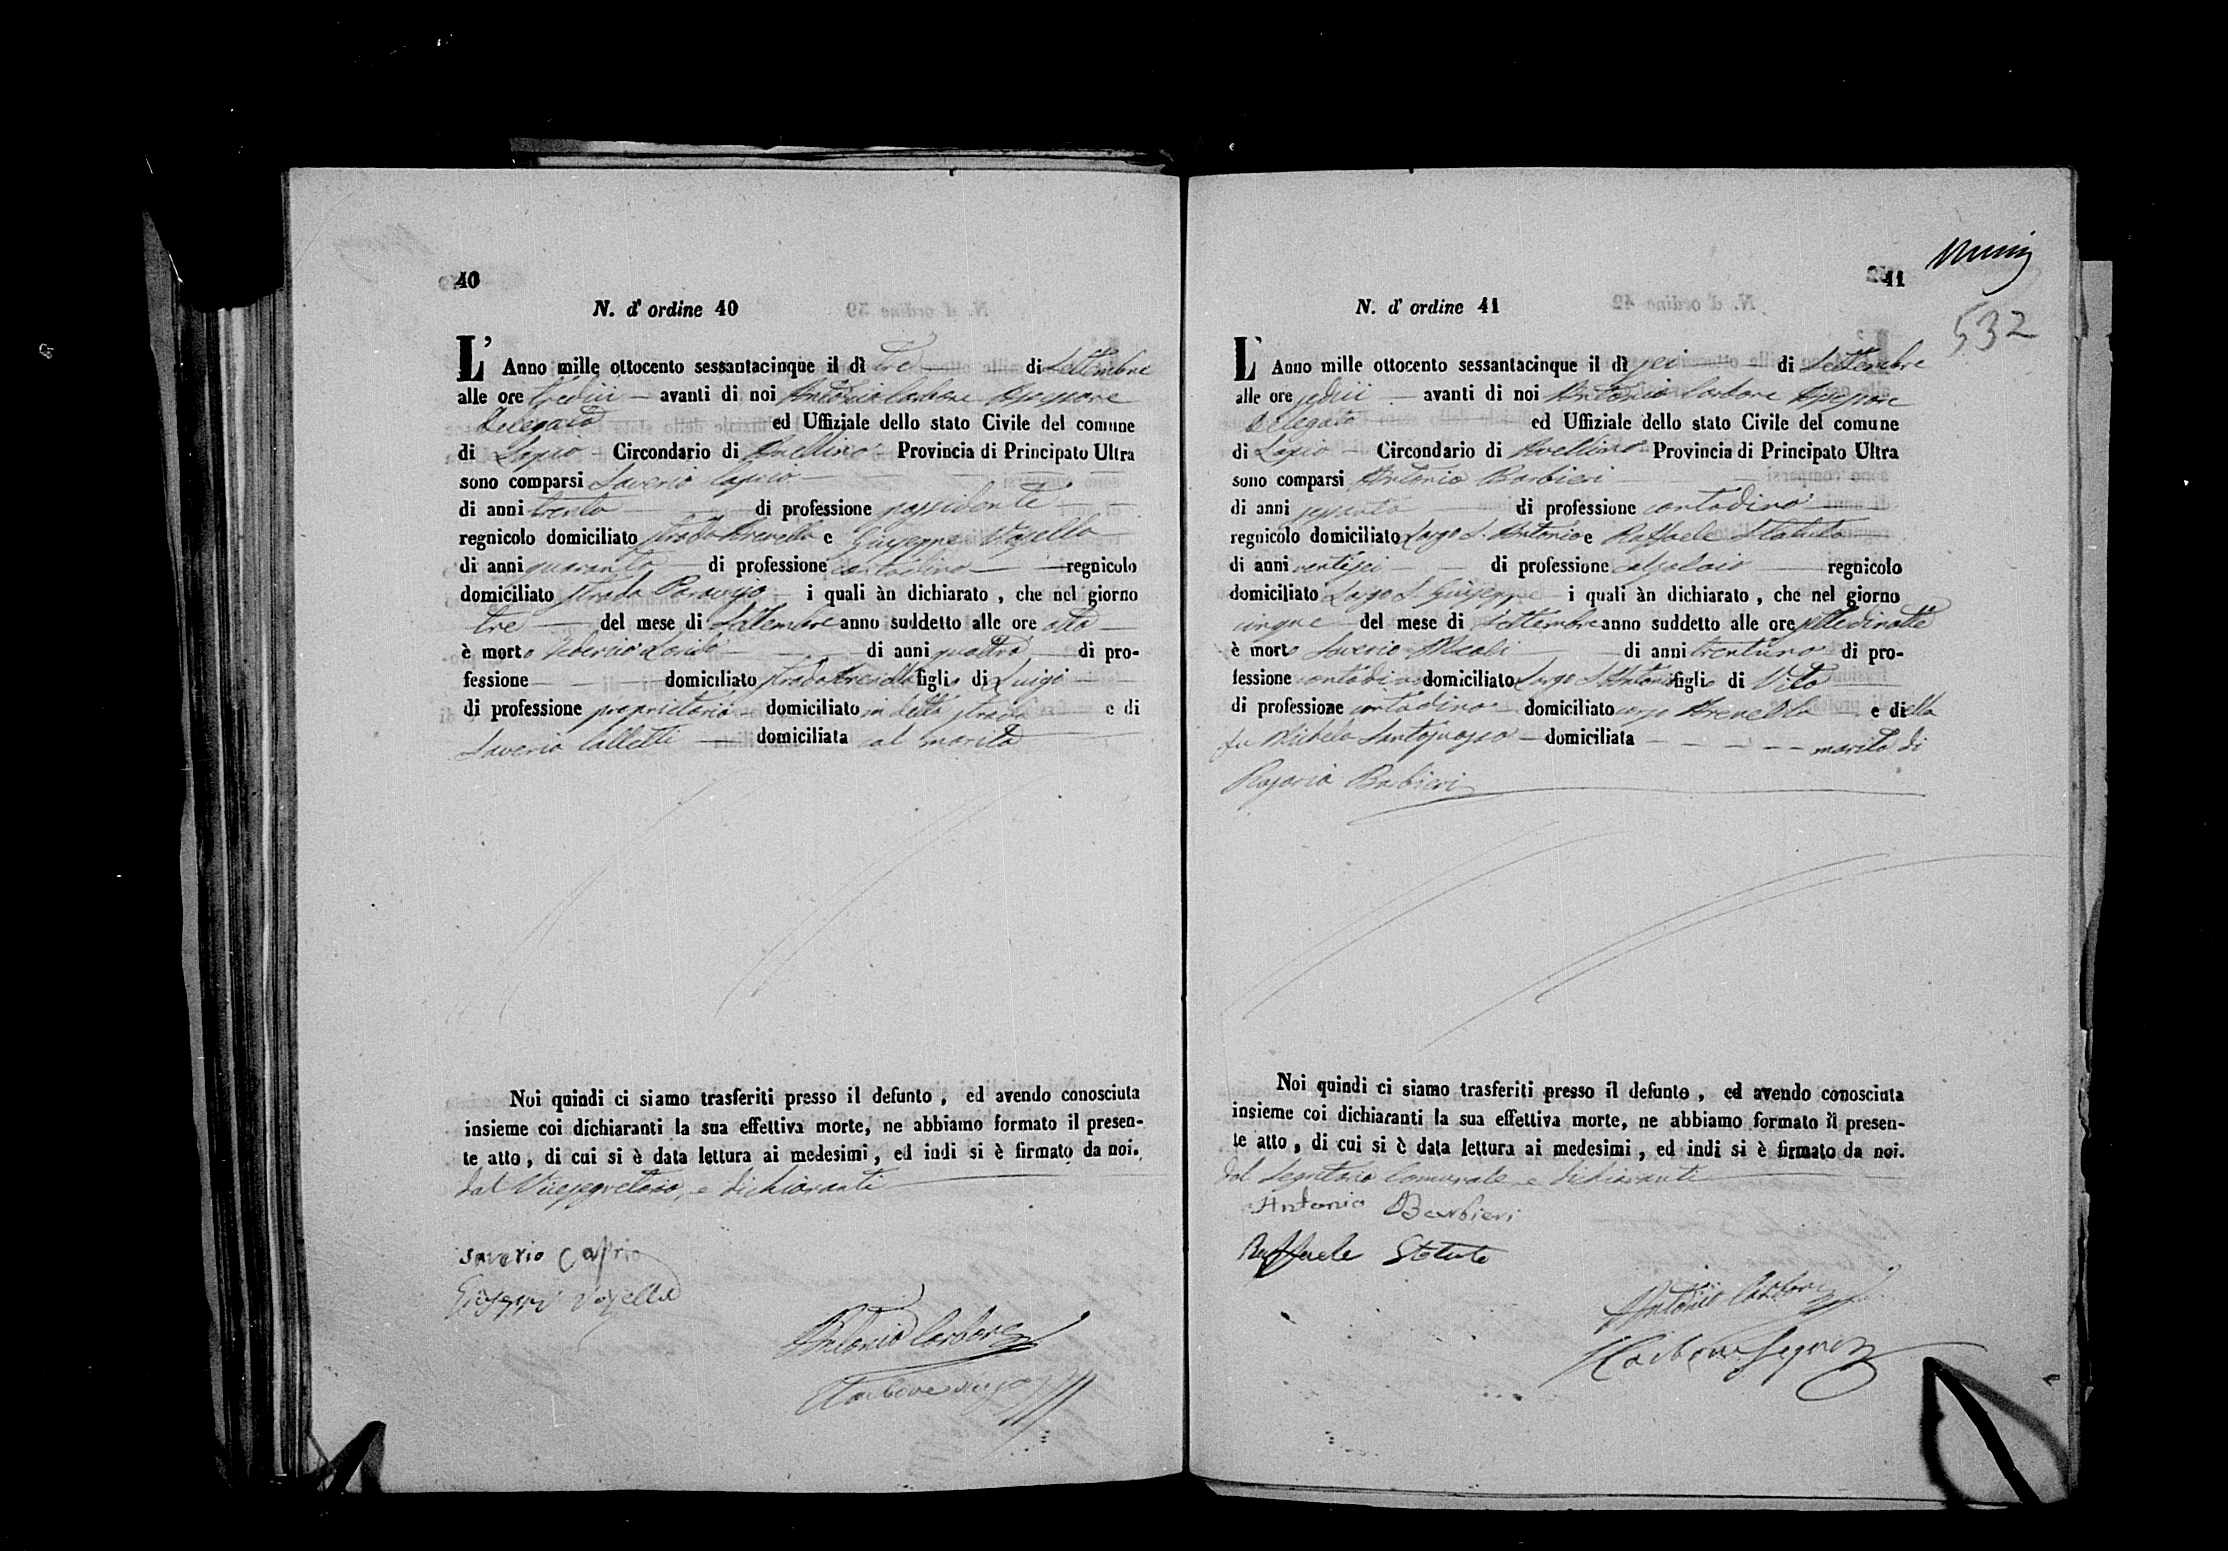 40
N. d' ordine 40
L' Anno mille ottocento sessantacinque il dì tre di Settembre
alle ore tredici avanti di noi Antonio Carbone Assessore
Delegato ed Uffiziale dello stato Civile del comune
di Lapio Circondario di Avellino Provincia di Principato Ultra
sono comparsi Saverio Caprio
di anni trenta di professione possidente
regnicolo domiciliato strada Arenella e Giuseppe Vasella
di anni quaranta di professione contadino regnicolo
domiciliato strada i quali àn dichiarato , che nel giorno
tre del mese di Settembre anno suddetto alle ore otto
è morto Federico di anni quattro di pro-
fessione domiciliato strada Arenella figlio di Luigi
di professione proprietario domiciliato in detta strada e di
Saveria Calletti domiciliata col marito
Noi quindi ci siamo trasferiti presso il defunto , ed avendo conosciuta
insieme coi dichiaranti la sua effettiva morte, ne abbiamo formato il presen-
te atto , di cui si è data lettura ai medesimi , ed indi si è firmato da noi.
dal Vicesegretario, e dichiaranti
Saverio Caprio
Giuseppe Vasella
Antonio Carbone
Carbone
41
532
N. d' ordine 41
L' Anno mille ottocento sessantacinque il dì sei di Settembre
alle ore sedici avanti di noi Antonio Carbone Assessore
Delegato ed Uffiziale dello stato Civile del comune
di Lapio Circondario di Avellino Provincia di Principato Ultra
sono comparsi Antonio Barbieri
di anni sessanta di professione contadino
regnicolo domiciliato Largo S. Antonio e Raffaele Statuto
di anni ventisei di professione calzolaio regnicolo
domiciliato Largo S. Giuseppe i quali àn dichiarato , che nel giorno
cinque del mese di Settembre anno suddetto alle ore sette di notte
è morto Saverio Meoli di anni trentuno di pro-
fessione contadino domiciliato Largo S. Antonio figlio di Vito
di professione contadino domiciliato Largo Arenella e di ella
fu Michela Santosuosso domiciliata marito di
Rosaria Barbieri
Noi quindi ci siamo trasferiti presso il defunto , ed avendo conosciuta
insieme coi dichiaranti la sua effettiva morte, ne abbiamo formato il presen-
te atto , di cui si è data lettura ai medesimi , ed indi si è firmato da noi.
dal Segretario Comunale e dichiaranti
Antonio Barbieri
Raffaele Statuto
Antonio Carbone
Carbone Segret